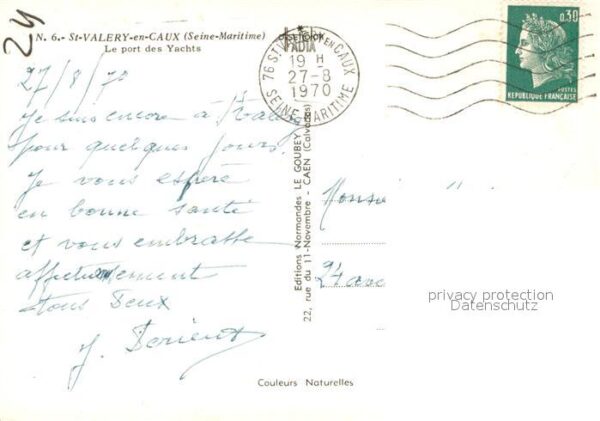 24
N. 6.- St-VALERY-en-CAUX (Seine-Maritime)
Le port des Yachts
27/8/70
Je suis encore à
pour quelques jours.
Je vous espère
en bonne santé
et vous embrasse
affectueusement
tous deux
Editions Normandes LE GOUBEY
22, rue du 11-Novembre - CAEN (Calvados)
Couleurs Naturelles
76 ST VALERY EN CAUX
19 H
27-8
1970
SEINE MARITIME
0,30
POSTES
REPUBLIQUE FRANÇAISE
24
privacy protection
Datenschutz